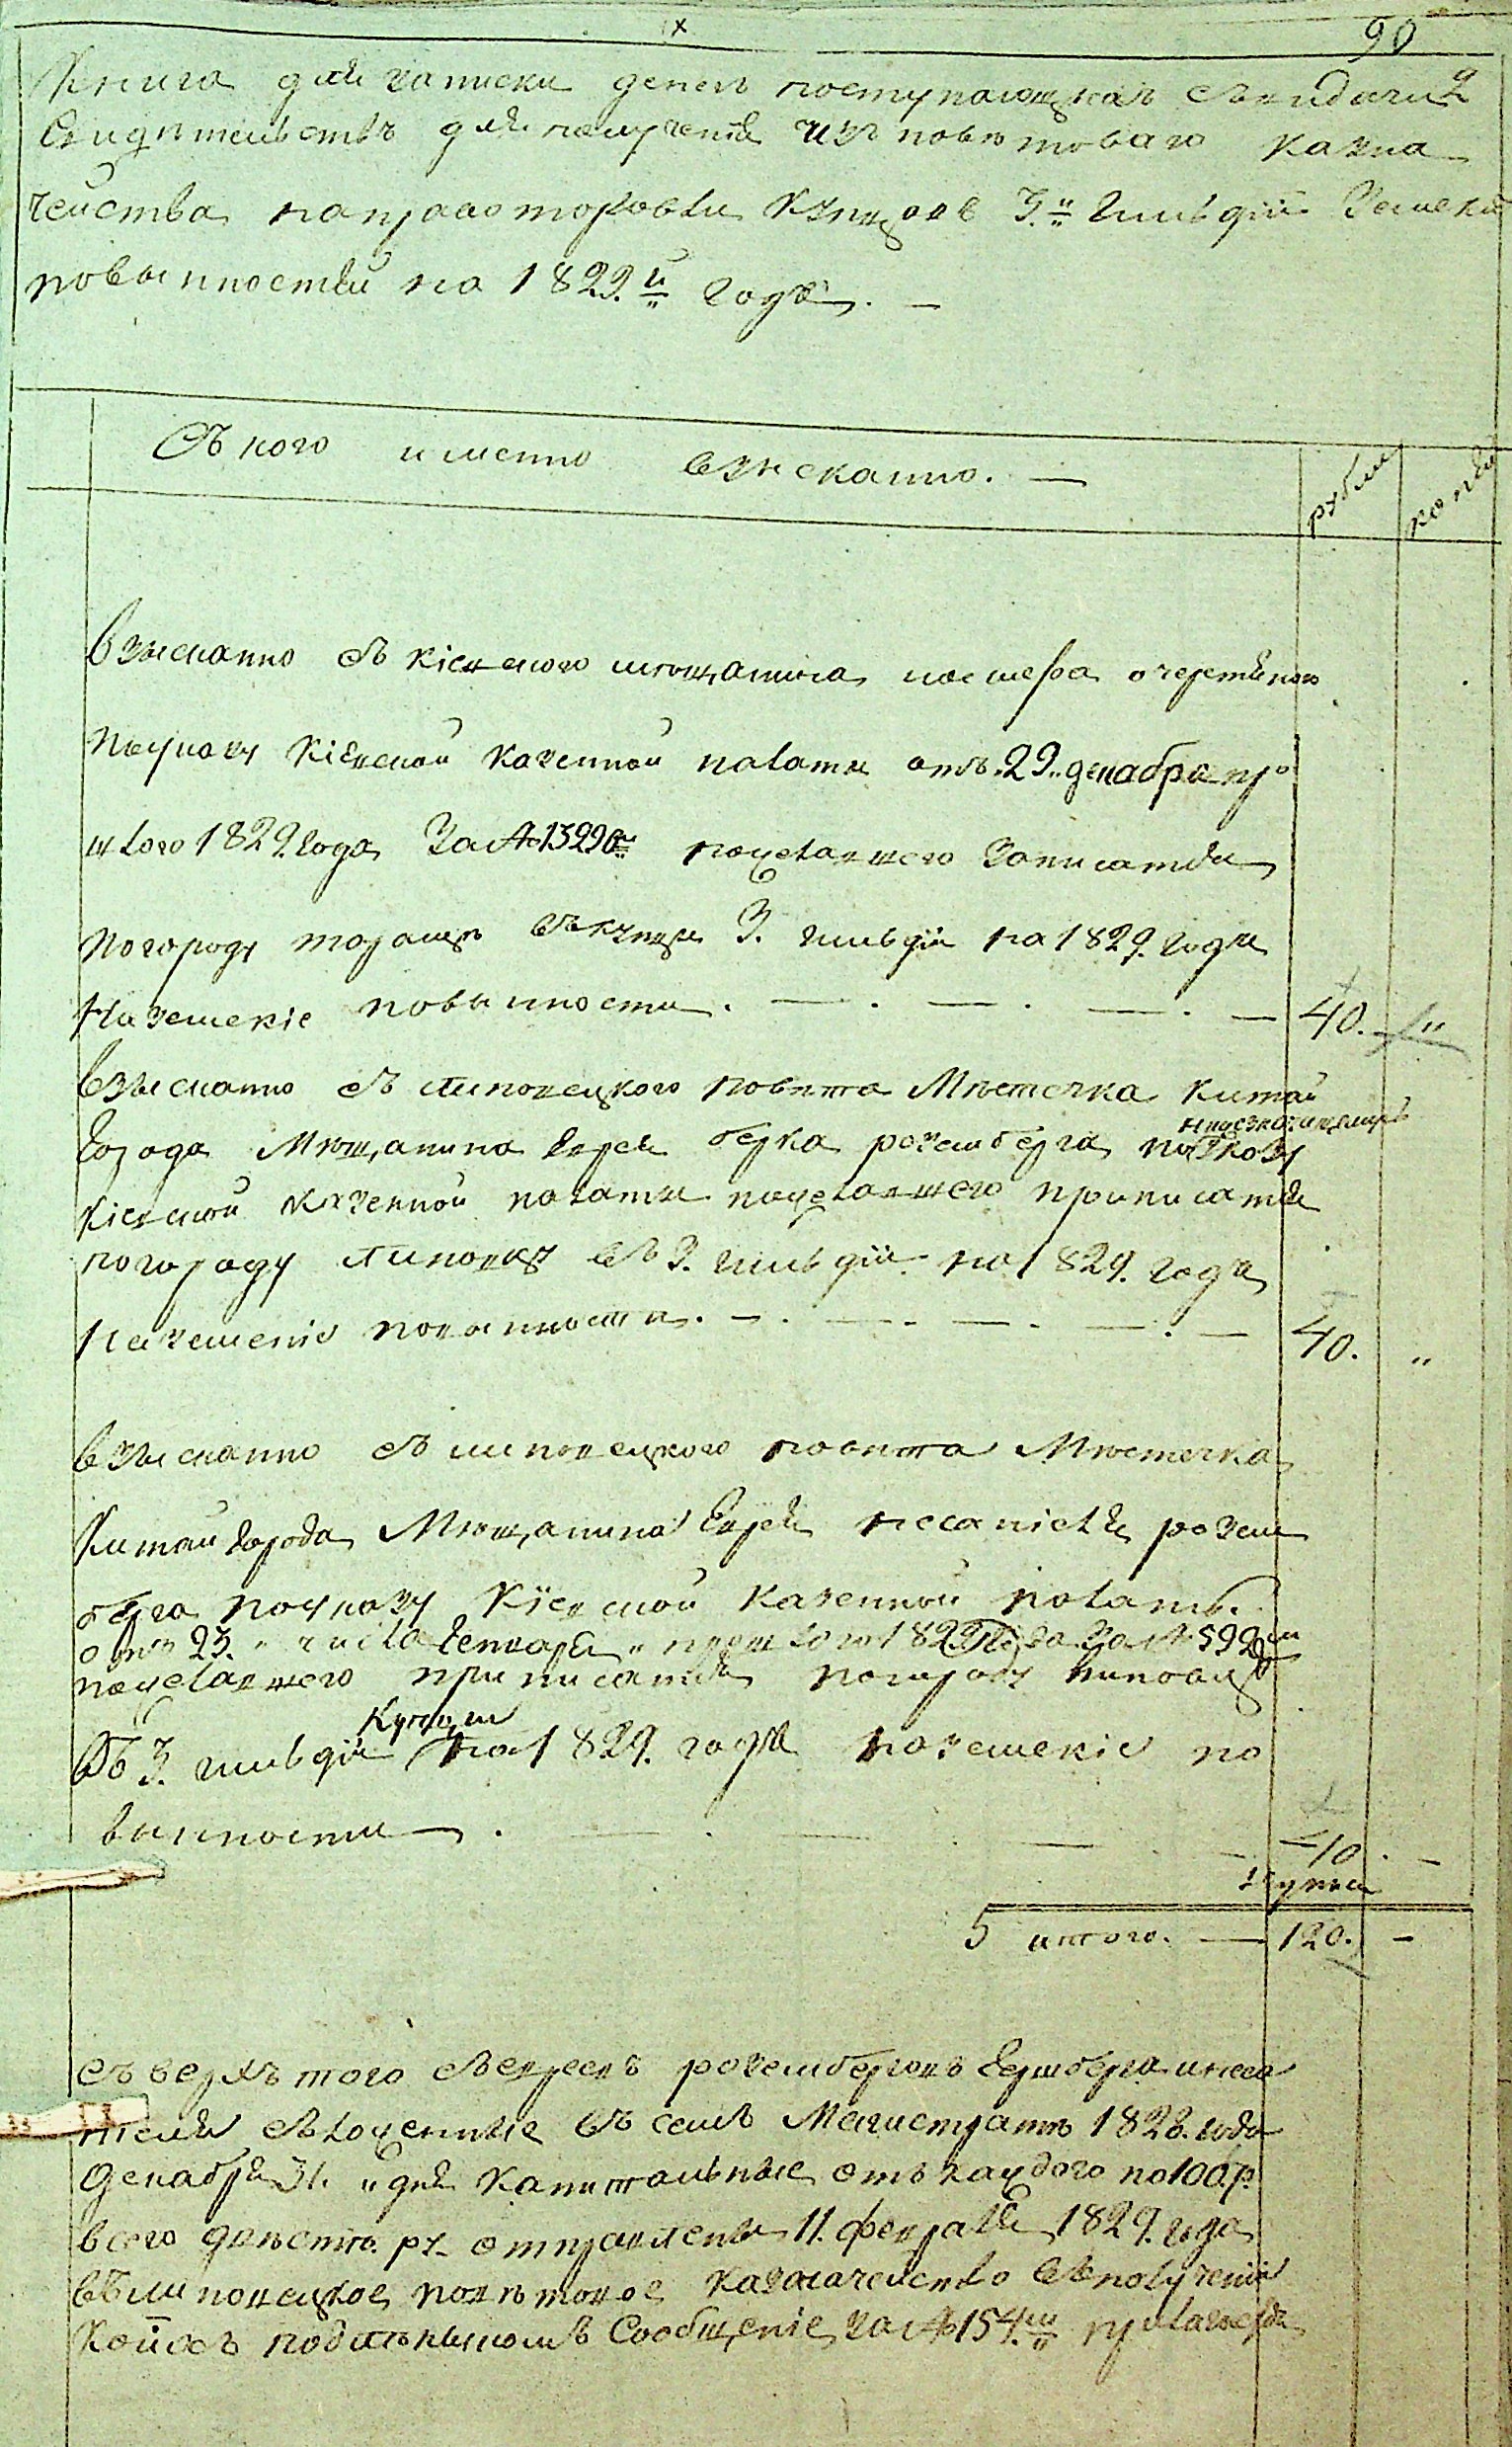 90
Книга для записки денегъ поступающихъ съвидачи
Свидѣтельствъ для полученія изъ повѣтоваго казна
чейства на право торговли купцовъ 3.й гильдіи Земскихъ
повынностей на 1829.й годъ. —
Съ кого именно взыскано. —
рубли
копѣй
Взысканно съ кіевского мѣщанина очеретяного
поуказу Кіевской Казенной палаты отъ 29. декабра про
шлого 1829. года За № 13290 поцелавшего записатся
погороду таращѣ въ купцы 3. гильдіи на 1829. годъ
На земскіе повынности. — . — . — . — 40. "
Взысканно съ липовецкого повѣта Мѣстечка Китай
города Мѣщанина Еврея берка роземберга поуказу
Кіевской Казенной палаты поцелавшего приписатся
погороду липовцу въ 3. гильдіи на 1829. годъ
На земскіе повынности. — . — . — . — . — 40. "
Взысканно съ липовецкого повѣта Мѣстечка
Китай города Мѣщанина Еврея розем
берга поуказу Кіевской Казенной палаты.
отъ 23. числа Генваря прошлого 1829 Года За № 592
поцелавшего приписатся погороду липовцу
Купцы
Въ 3. гильдіи на 1829. годъ на земскіе по
вынности — . — 40. —
итого. — 120. —
Съверхъ того съевреевъ розембергов
сълоченные въ семъ Магистратѣ 1828. года
Декабря 31. дня Капитальные отъ каждого по 100. р.
всего двѣстѣ ру. отправлены 11. февраля 1829. года
въ липовецкое повѣтовое казначейство въ полученіи
Коихъ подлѣннномъ Сообщеніе за № 154.м прилагаетса